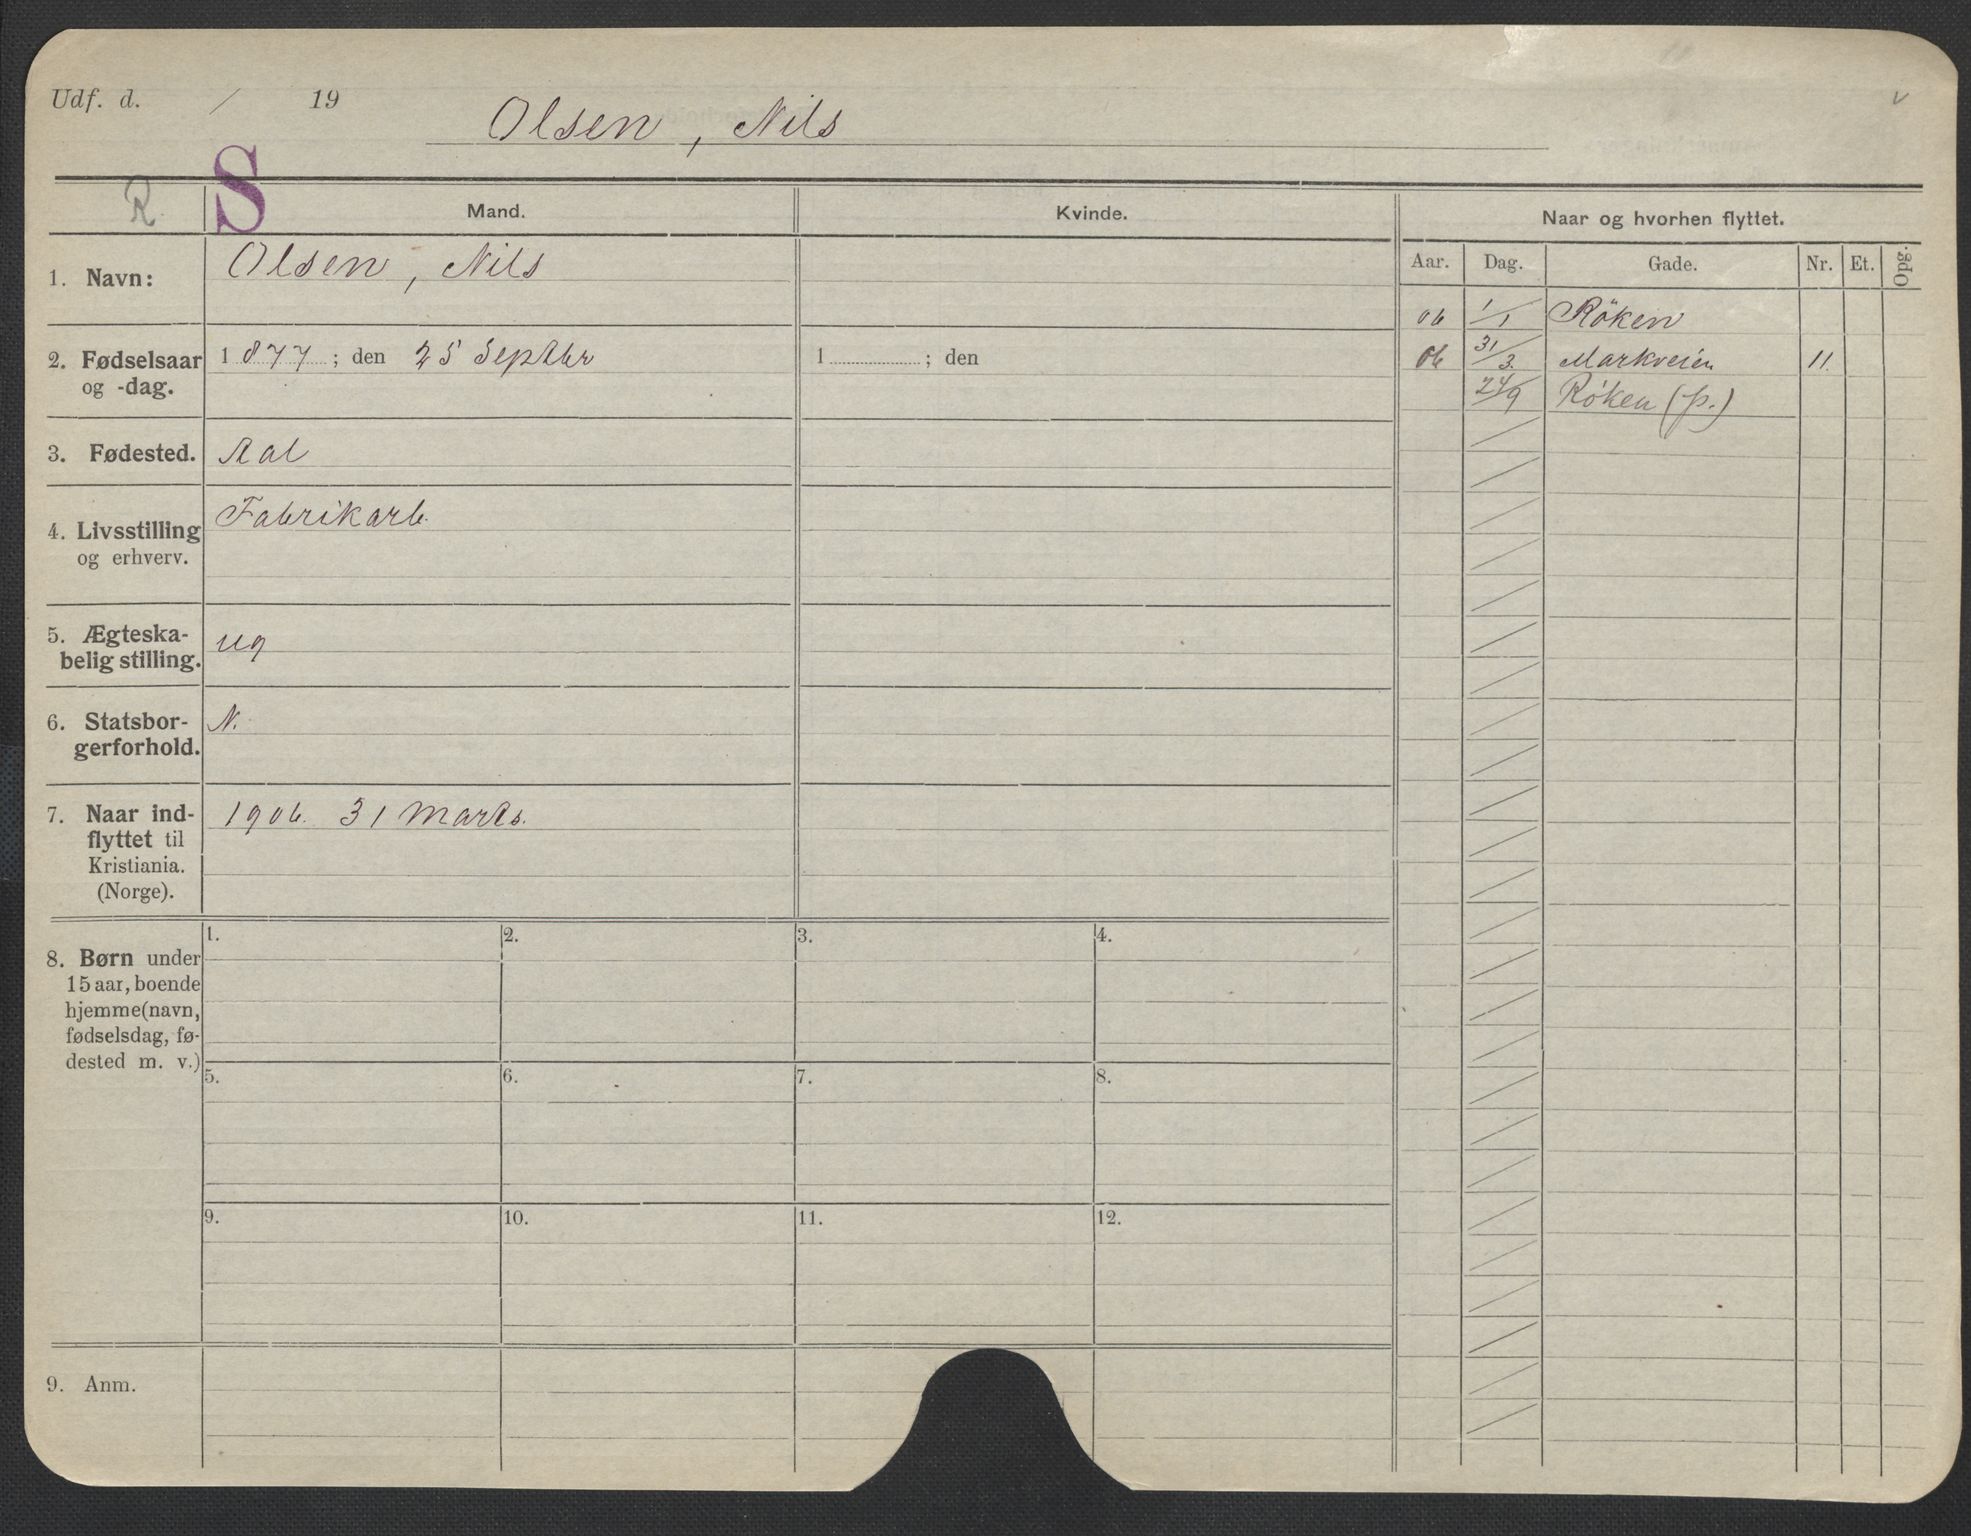 Udf. d. / 19
Olsen, Nils
R. S Mand. Kvinde. Naar og hvorhen flyttet.
Aar. Dag. Gade. Nr. Et. Opg.
1. Navn: Olsen, Nils
06 1/1 Röken
06 31/3. Markveien 11.
24/9 Röken (p.)
2. Fødselsaar 1877; den 25 Septbr 1 ; den
og -dag.
3. Fødested. Aal
4. Livsstilling Fabrikarb.
og erhverv.
5. Ægteska- ug
belig stilling.
6. Statsbor- N.
gerforhold.
7. Naar ind- 1906. 31 Marts.
flyttet til
Kristiania.
(Norge).
8. Børn under
15 aar, boende
hjemme (navn,
fødselsdag, fø-
dested m. v.)
1. 2. 3. 4.
5. 6. 7. 8.
9. 10. 11. 12.
9. Anm.